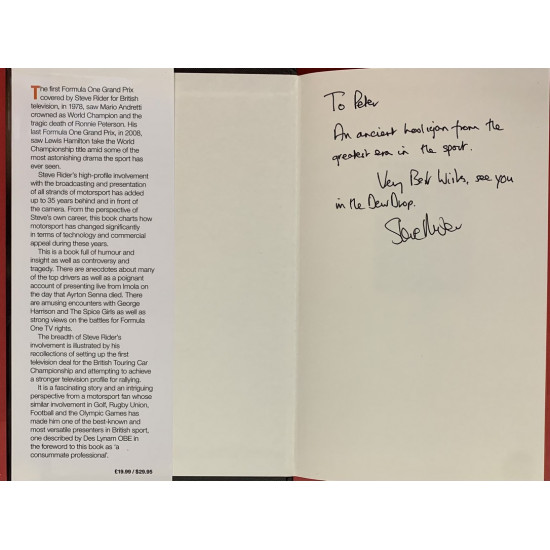 The first Formula One Grand Prix
covered by Steve Rider for British
television, in 1978, saw Mario Andretti
crowned as World Champion and the
tragic death of Ronnie Peterson. His
last Formula One Grand Prix, in 2008,
saw Lewis Hamilton take the World
Championship title amid some of the
most astonishing drama the sport has
ever seen.
Steve Rider's high-profile involvement
with the broadcasting and presentation
of all strands of motorsport has added
up to 35 years behind and in front of
the camera. From the perspective of
Steve's own career, this book charts how
motorsport has changed significantly
in terms of technology and commercial
appeal during these years.
This is a book full of humour and
insight as well as controversy and
tragedy. There are anecdotes about many
of the top drivers as well as a poignant
account of presenting live from Imola on
the day that Ayrton Senna died. There
are amusing encounters with George
Harrison and The Spice Girls as well as
strong views on the battles for Formula
One TV rights.
The breadth of Steve Rider's
involvement is illustrated by his
recollections of setting up the first
television deal for the British Touring Car
Championship and attempting to achieve
a stronger television profile for rallying.
It is a fascinating story and an intriguing
perspective from a motorsport fan whose
similar involvement in Golf, Rugby Union,
Football and the Olympic Games has
made him one of the best-known and
most versatile presenters in British sport,
one described by Des Lynam OBE in
the foreword to this book as 'a
consummate professional'.
£19.99 / $29.95
To Peter
An ancient hooligan from the
greatest era in the sport.
Very Best Wishes, see you
in the Dew Drop.
Steve Rider